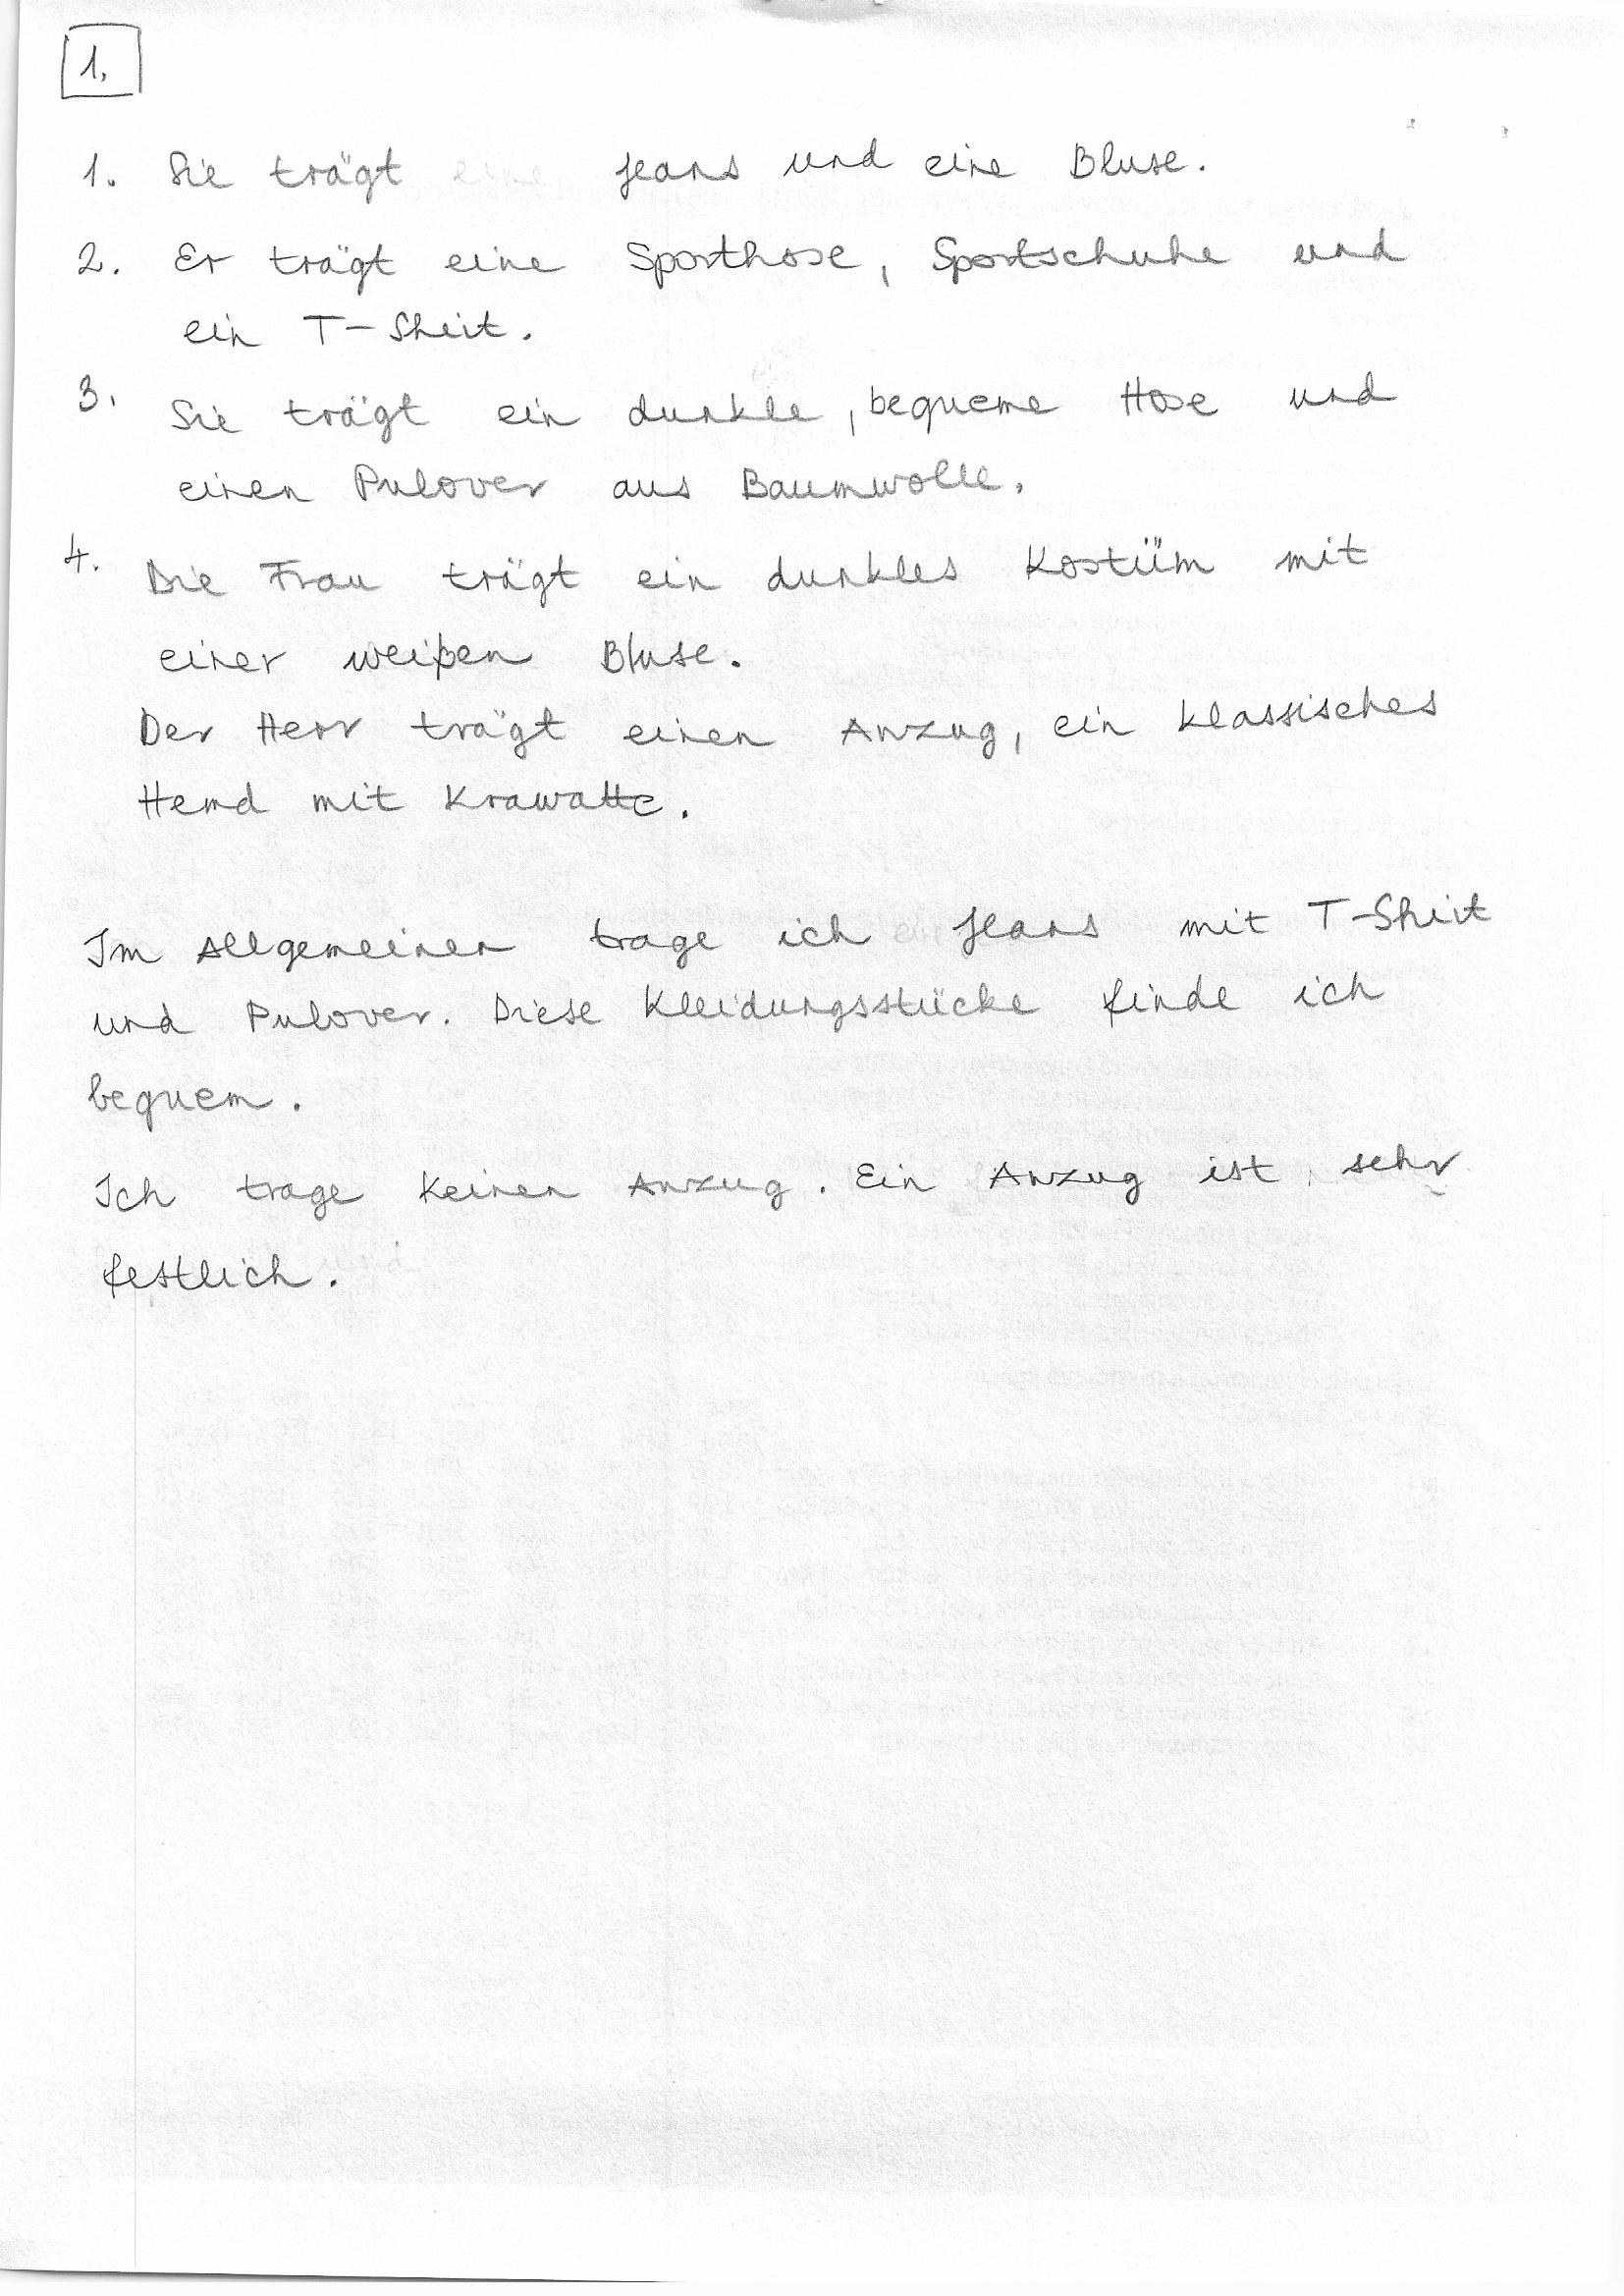 1.
1. Sie trägt Jeans und eine Bluse.
2. Er trägt eine Sporthose, Sportschuhe und
ein T-Shirt.
3. Sie trägt ein dunkle, bequeme Hose und
einen Pulover aus Baumwolle.
4. Die Frau trägt ein dunkles Kostüm mit
einer weißen Bluse.
Der Herr trägt einen Anzug, ein klassisches
Hemd mit Krawatte.
Im Allgemeinen trage ich Jeans mit T-Shirt
und Pulover. Diese Kleidungsstücke finde ich
bequem.
Ich trage keinen Anzug. Ein Anzug ist sehr
festlich.